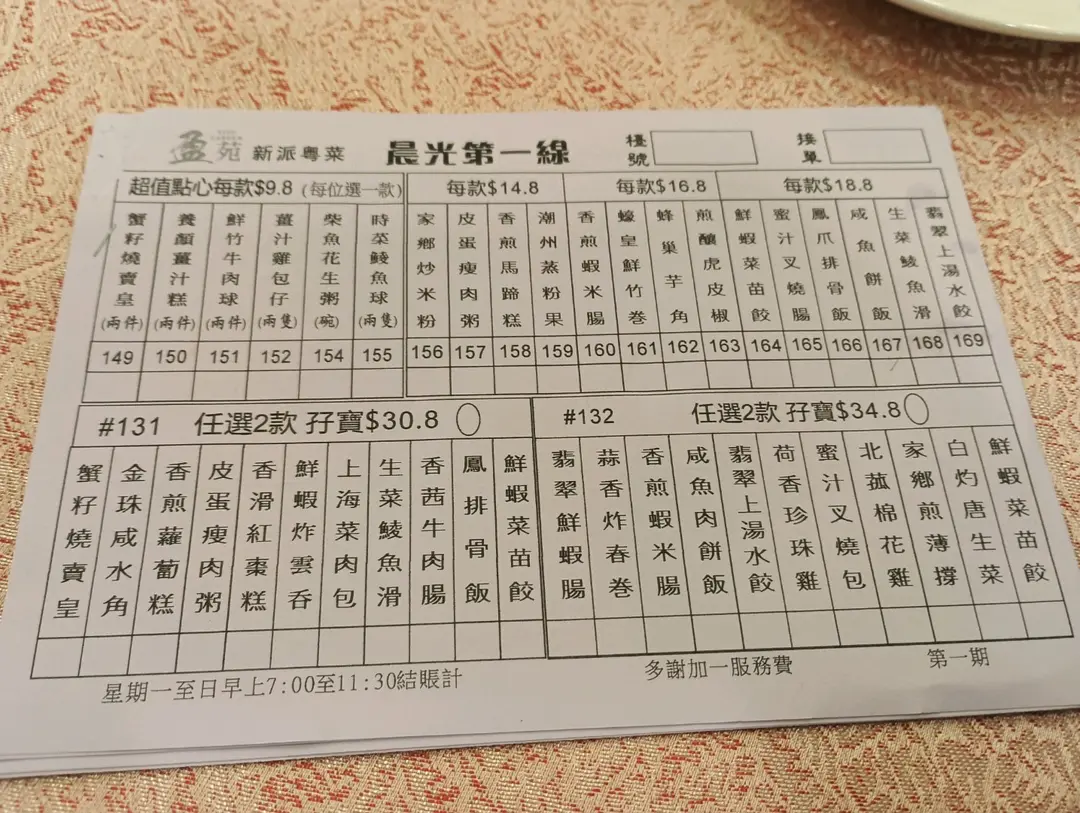 盈苑 新派粵菜 晨光第一線 檯號 接單
超值點心每款$9.8 (每位選一款) 每款$14.8 每款$16.8 每款$18.8
蟹籽燒賣皇(兩件)
養顏薑汁糕(兩件)
鮮竹牛肉球(兩件)
薑汁雞包仔(兩隻)
柴魚花生粥(碗)
時菜鯪魚球(兩隻)
家鄉炒米粉
皮蛋瘦肉粥
香煎馬蹄糕
潮州蒸粉果
香煎蝦米腸
蠔皇鮮竹卷
蜂巢芋角
煎釀虎皮椒
鮮蝦菜苗餃
蜜汁叉燒腸
鳳爪排骨飯
咸魚餅飯
生菜鯪魚滑
翡翠上湯水餃
149 150 151 152 154 155 156 157 158 159 160 161 162 163 164 165 166 167 168 169
#131 任選2款 孖寶$30.8
蟹籽燒賣皇
金珠咸水角
香煎蘿蔔糕
皮蛋瘦肉粥
香滑紅棗糕
鮮蝦炸雲吞
上海菜肉包
生菜鯪魚滑
香茜牛肉腸
鳳排骨飯
鮮蝦菜苗餃
#132 任選2款 孖寶$34.8
翡翠鮮蝦腸
蒜香炸春巻
香煎蝦米腸
咸魚肉餅飯
翡翠上湯水餃
荷香珍珠雞
蜜汁叉燒包
北菰棉花雞
家鄉煎薄撐
白灼唐生菜
鮮蝦菜苗餃
星期一至日早上7:00至11:30結賬計 多謝加一服務費 第一期